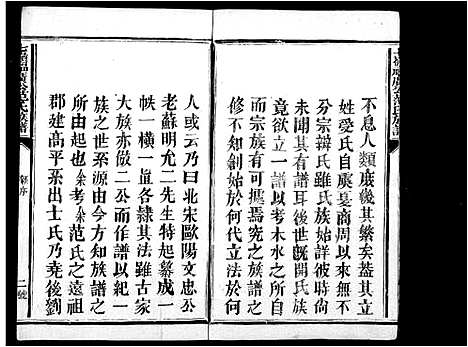 不息人類庶後其繁矣蓋其立
姓受氏自虞夏商周以來無不
分宗辨氏雖氏族始詳彼時尚
未聞其有譜耳後世旣開氏族
竟欲立一譜以考木水之所自
而宗族有可攄焉究之族譜之
作又不知創始於何代立法於何
人或云乃曰北宋歐陽文忠公
老蘇明允二先生特起纂成一
帙一橫一直各隸其法雖古家
大族亦倣二公而作譜以紀一
族之世系源由今方知族譜一
郡建高平系也余考余范氏之遠祖
系出士氏乃堯後劉
二號